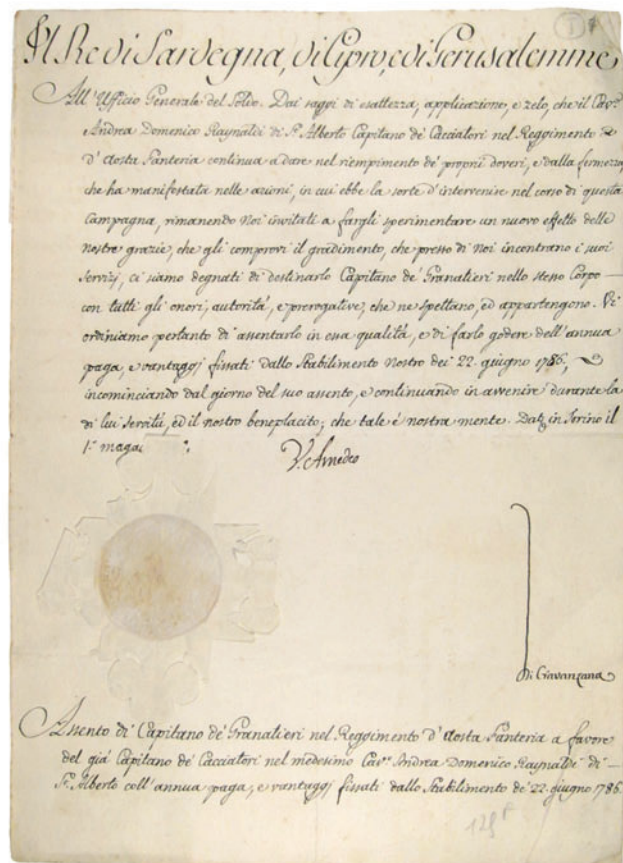 Il Re di Sardegna, di Cipro, e di Gerusalemme
All' Ufficio Generale del Soldo. Dai saggi di esattezza, applicazione, e zelo, che il Cav.re
Andrea Domenico Raynaldi di S.t Alberto Capitano de' Cacciatori nel Reggimento
d'Aosta Fanteria continua a dare nel riempimento de' proprii doveri, e dalla fermezza,
che ha manifestata nelle azioni, in cui ebbe la sorte d'intervenire nel corso di questa
Campagna, rimanendo Noi invitati a fargli sperimentare un nuovo effetto delle
nostre grazie, che gli comprovi il gradimento, che presso di Noi incontrano i suoi
Servizj, ci siamo degnati di destinarlo Capitano de' Granatieri nello stesso Corpo —
con tutti gli onori, autorità, e prerogative, che ne spettano, ed appartengono. Vi
ordiniamo pertanto di assentarlo in essa qualità, e di farlo godere dell'annua
paga, e vantaggj fissati dallo Stabilimento Nostro dei 22. giugno 1786,
incominciando dal giorno del suo assento, e continuando in avvenire durante la
di lui Servitù, ed il nostro beneplacito; che tale è nostra mente. Dat. in Torino il
1.º
V. Amedeo
Di Cravanzana
Assento di Capitano de' Granatieri nel Reggimento d'Aosta Fanteria a favore
del già Capitano de' Cacciatori nel medesimo Cav.re Andrea Domenico Raynaldi di —
S.t Alberto coll'annua paga, e vantaggj fissati dallo Stabilimento de' 22. giugno 1786.